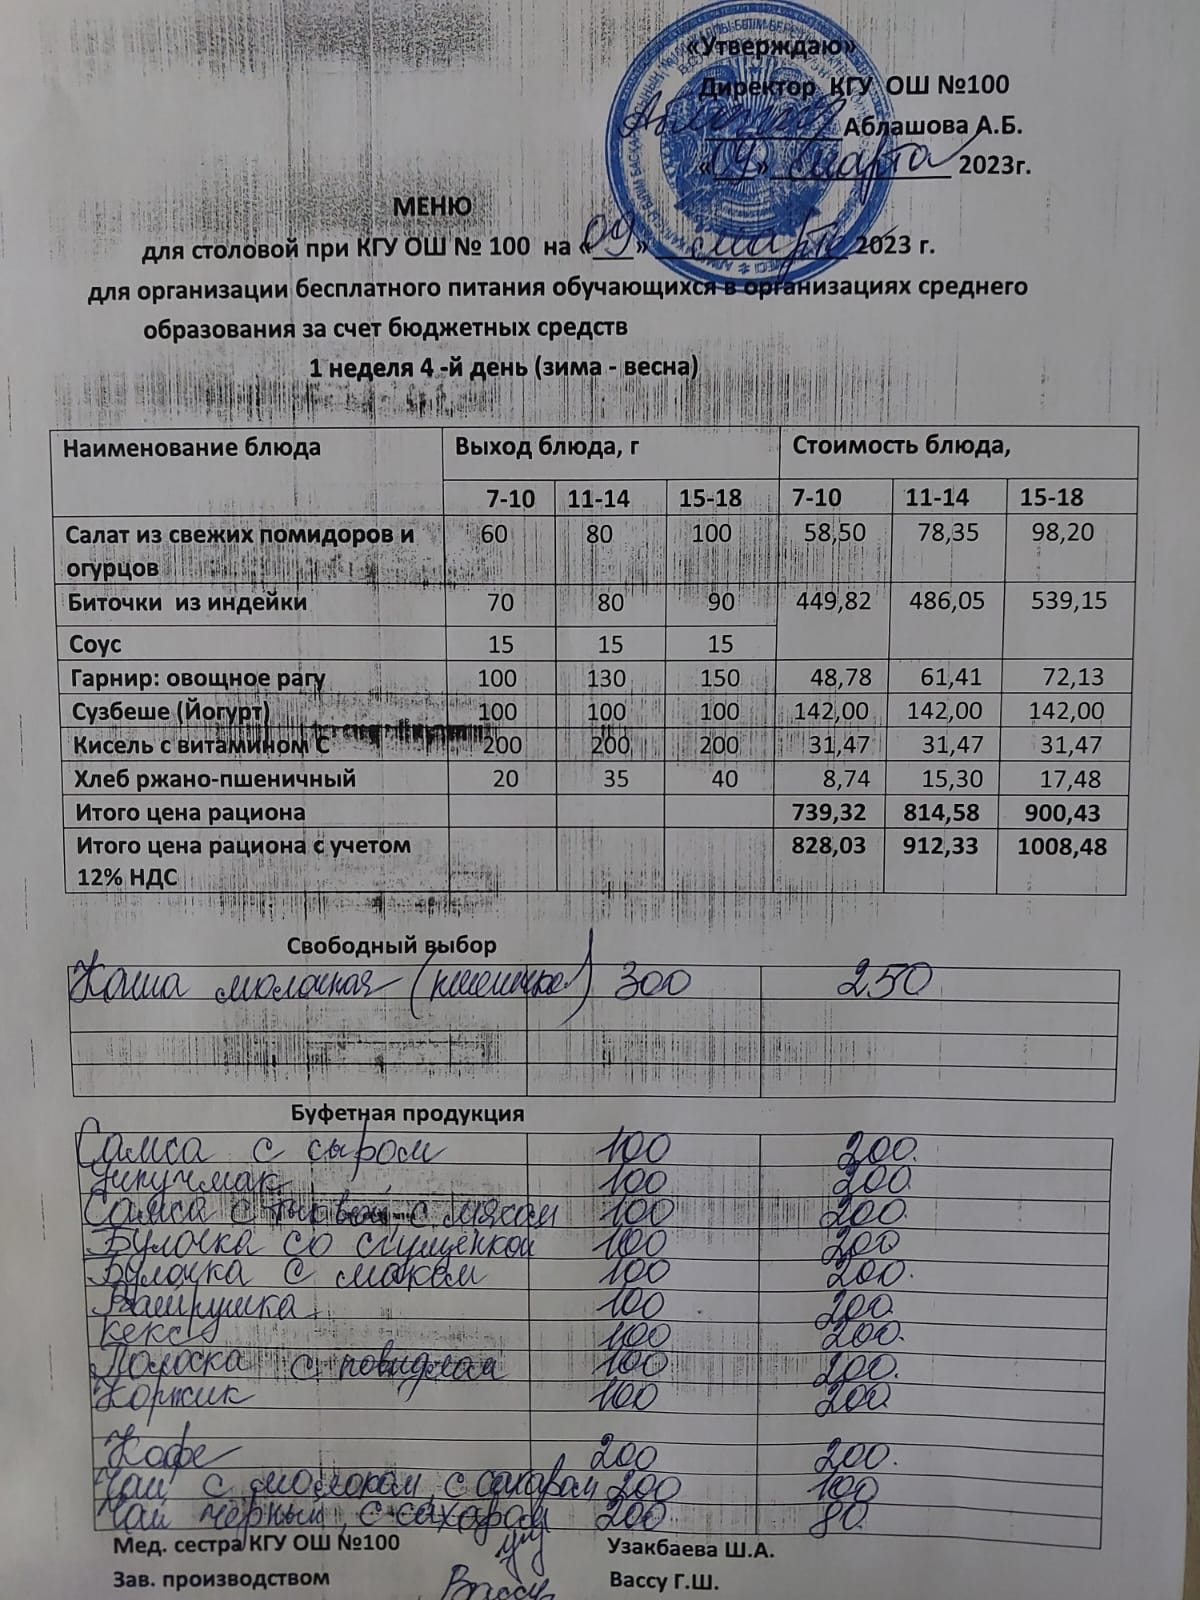 «Утверждаю»
Директор КГУ ОШ №100
Аблашова А.Б.
«09» марта 2023г.
МЕНЮ
для столовой при КГУ ОШ № 100 на «09» марта 2023 г.
для организации бесплатного питания обучающихся в организациях среднего
образования за счет бюджетных средств
1 неделя 4 -й день (зима - весна)
Наименование блюда Выход блюда, г Стоимость блюда,
7-10 11-14 15-18 7-10 11-14 15-18
Салат из свежих помидоров и огурцов 60 80 100 58,50 78,35 98,20
Биточки из индейки 70 80 90 449,82 486,05 539,15
Соус 15 15 15
Гарнир: овощное рагу 100 130 150 48,78 61,41 72,13
Сузбеше (Йогурт) 100 100 100 142,00 142,00 142,00
Кисель с витамином С 200 200 200 31,47 31,47 31,47
Хлеб ржано-пшеничный 20 35 40 8,74 15,30 17,48
Итого цена рациона 739,32 814,58 900,43
Итого цена рациона с учетом 12% НДС 828,03 912,33 1008,48
Свободный выбор
Каша молочная 300 250
Буфетная продукция
Самса с сыром 100 200.
учпучмак 100 200
Самса с тыквой с мясом 100 200
Булочка со сгущенкой 100 200
Булочка с маком 100 200.
Ватрушка 100 200.
кекс 100 200.
Полоска с повидлом 100 200.
Коржик 100 200
Кофе 200 200.
Чай с молоком, с сахаром 200 100
Чай черный, с сахаром 200 80
Мед. сестра КГУ ОШ №100 Узакбаева Ш.А.
Зав. производством Вассу Вассу Г.Ш.